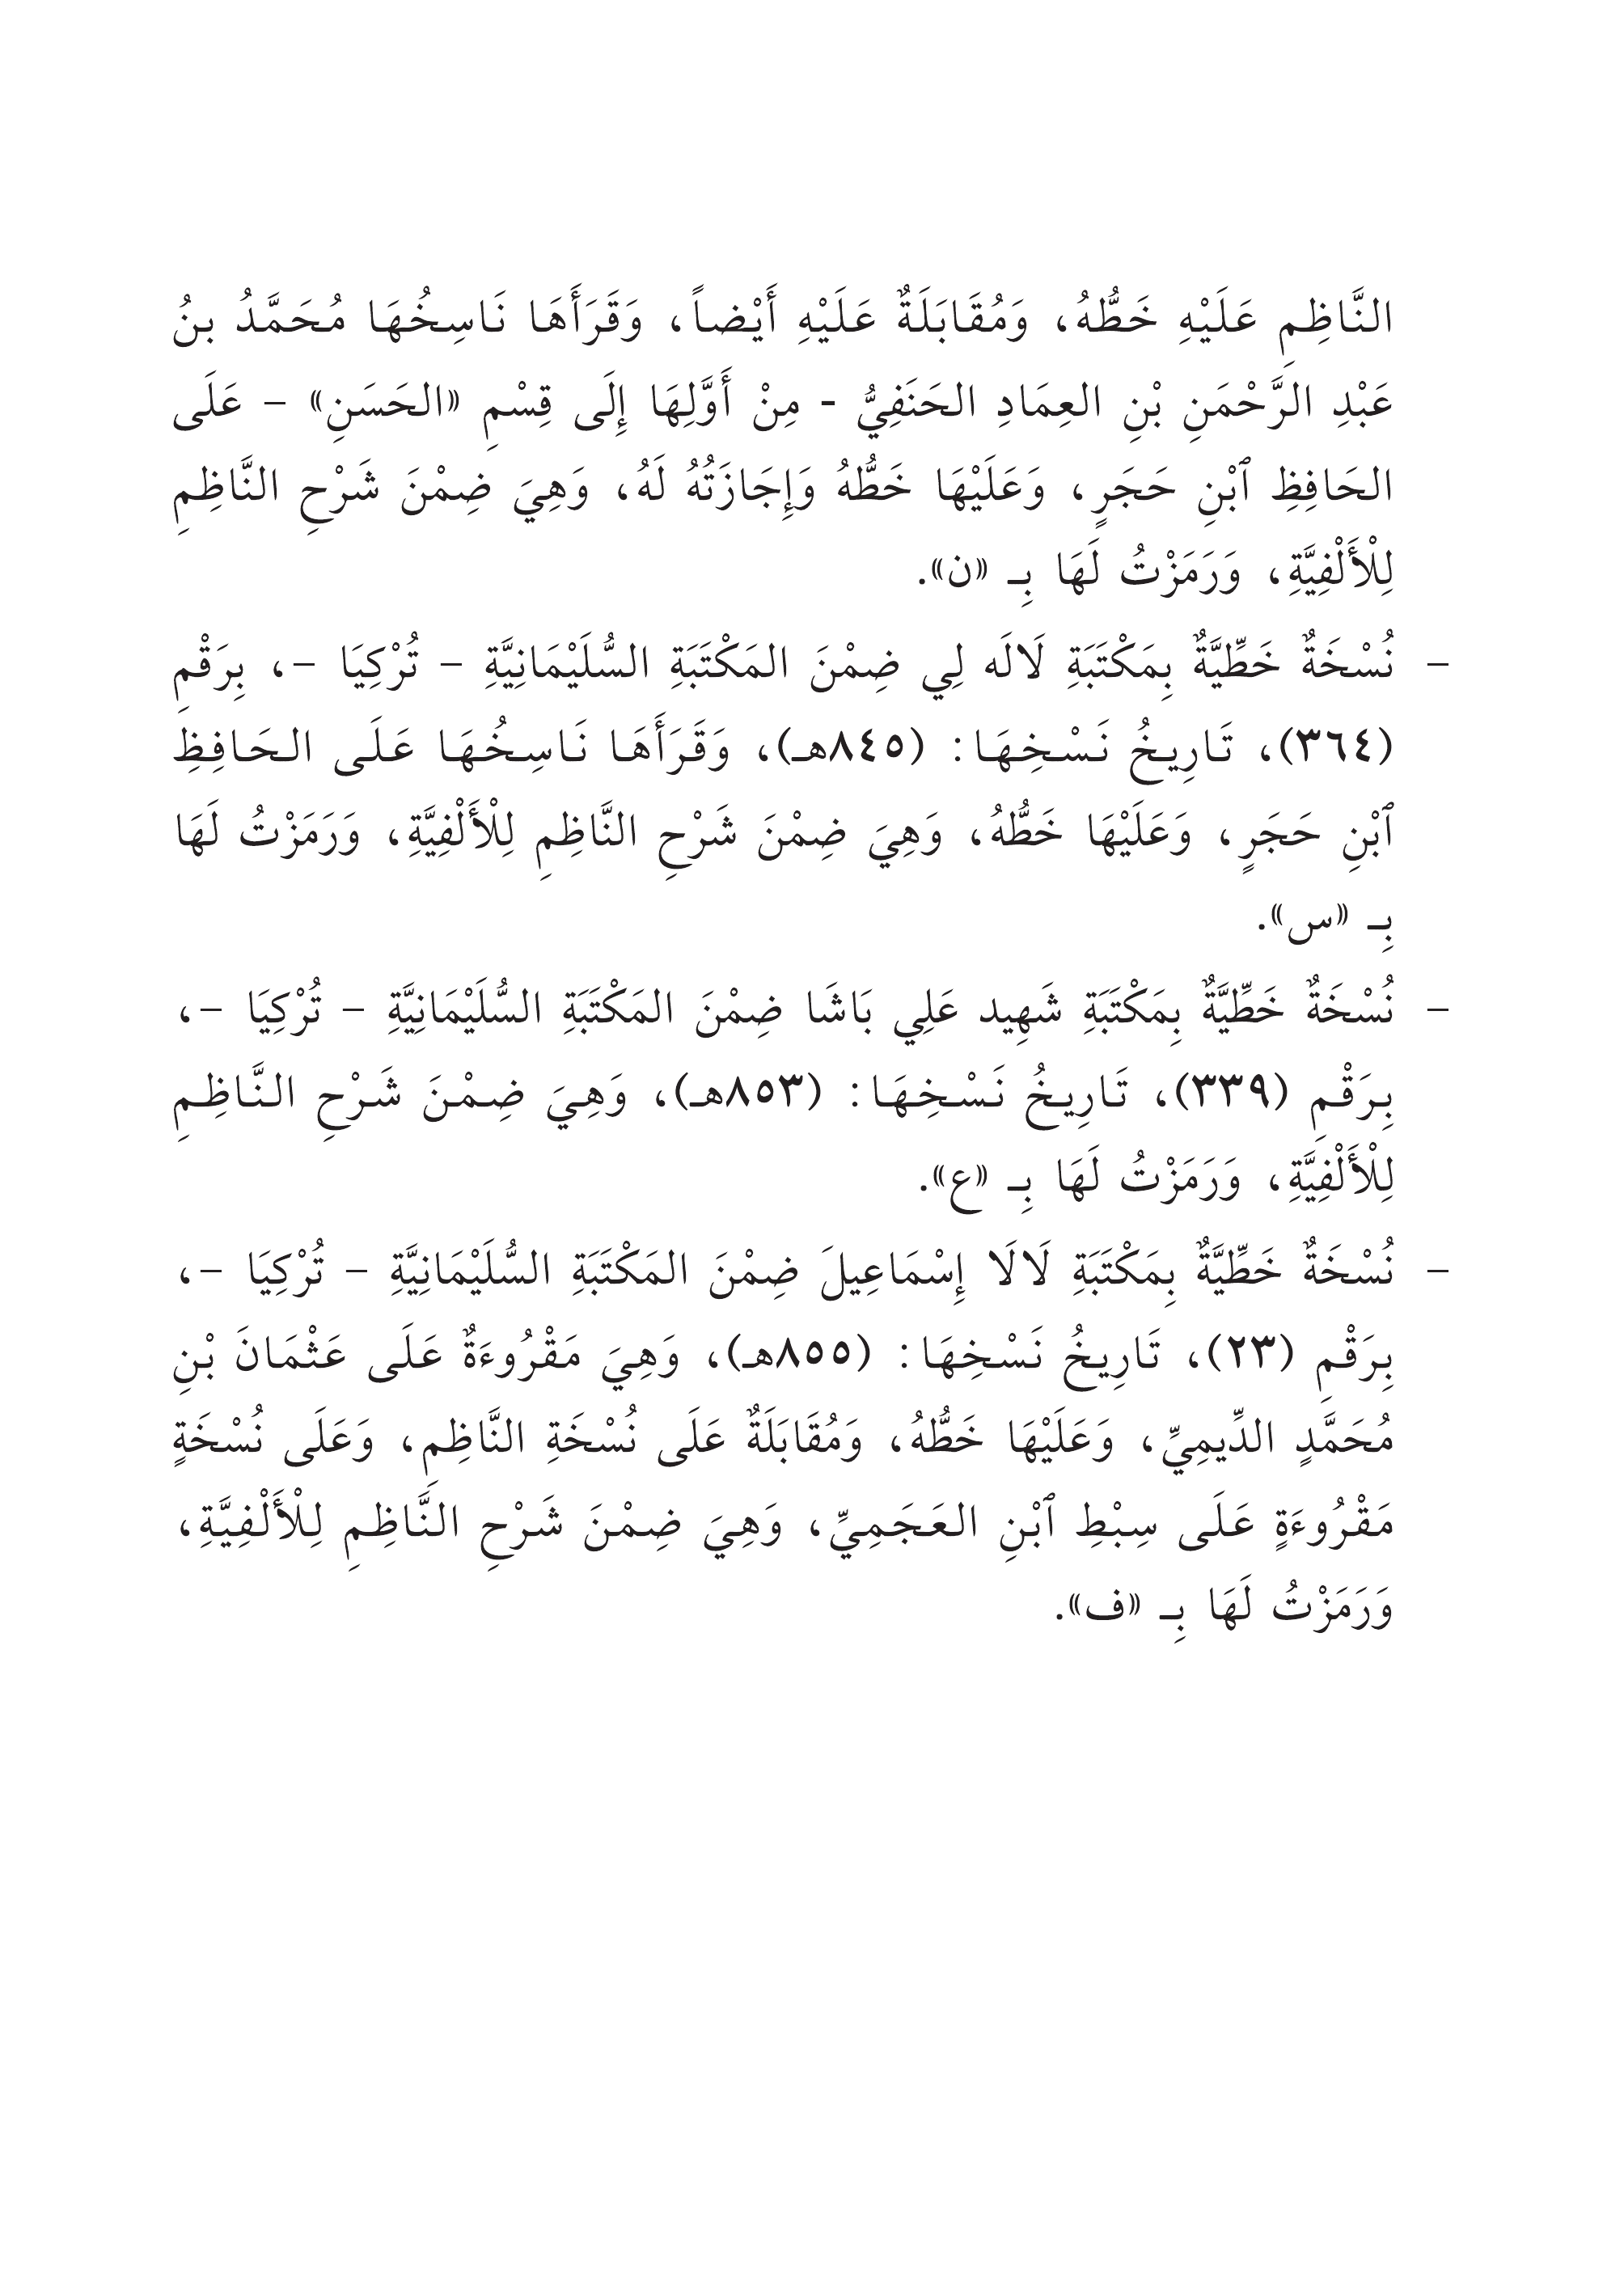 النَّاظِمِ عَلَيْهِ خَطُّهُ، وَمُقَابَلَةٌ عَلَيْهِ أَيْضاً، وَقَرَأَهَا نَاسِخُهَا مُحَمَّدُ بنُ
عَبْدِ الرَّحْمَنِ بْنِ العِمَادِ الحَنَفِيُّ - مِنْ أَوَّلِهَا إِلَى قِسْمِ «الحَسَنِ» – عَلَى
الحَافِظِ ٱبْنِ حَجَرٍ، وَعَلَيْهَا خَطُّهُ وَإِجَازَتُهُ لَهُ، وَهِيَ ضِمْنَ شَرْحِ النَّاظِمِ
لِلْأَلْفِيَّةِ، وَرَمَزْتُ لَهَا بِـ «ن».
– نُسْخَةٌ خَطِّيَّةٌ بِمَكْتَبَةِ لَالَه لِي ضِمْنَ المَكْتَبَةِ السُّلَيْمَانِيَّةِ – تُرْكِيَا –، بِرَقْمِ
(٣٦٤)، تَارِيخُ نَسْخِهَا: (٨٤٥هـ)، وَقَرَأَهَا نَاسِخُهَا عَلَى الحَافِظِ
ٱبْنِ حَجَرٍ، وَعَلَيْهَا خَطُّهُ، وَهِيَ ضِمْنَ شَرْحِ النَّاظِمِ لِلْأَلْفِيَّةِ، وَرَمَزْتُ لَهَا
بِـ «س».
– نُسْخَةٌ خَطِّيَّةٌ بِمَكْتَبَةِ شَهِيد عَلِي بَاشَا ضِمْنَ المَكْتَبَةِ السُّلَيْمَانِيَّةِ – تُرْكِيَا –،
بِرَقْمِ (٣٣٩)، تَارِيخُ نَسْخِهَا: (٨٥٣هـ)، وَهِيَ ضِمْنَ شَرْحِ النَّاظِمِ
لِلْأَلْفِيَّةِ، وَرَمَزْتُ لَهَا بِـ «ع».
– نُسْخَةٌ خَطِّيَّةٌ بِمَكْتَبَةِ لَالَا إِسْمَاعِيلَ ضِمْنَ المَكْتَبَةِ السُّلَيْمَانِيَّةِ – تُرْكِيَا –،
بِرَقْمِ (٢٣)، تَارِيخُ نَسْخِهَا: (٨٥٥هـ)، وَهِيَ مَقْرُوءَةٌ عَلَى عَثْمَانَ بْنِ
مُحَمَّدٍ الدِّيمِيِّ، وَعَلَيْهَا خَطُّهُ، وَمُقَابَلَةٌ عَلَى نُسْخَةِ النَّاظِمِ، وَعَلَى نُسْخَةٍ
مَقْرُوءَةٍ عَلَى سِبْطِ ٱبْنِ العَجَمِيِّ، وَهِيَ ضِمْنَ شَرْحِ النَّاظِمِ لِلْأَلْفِيَّةِ،
وَرَمَزْتُ لَهَا بِـ «ف».